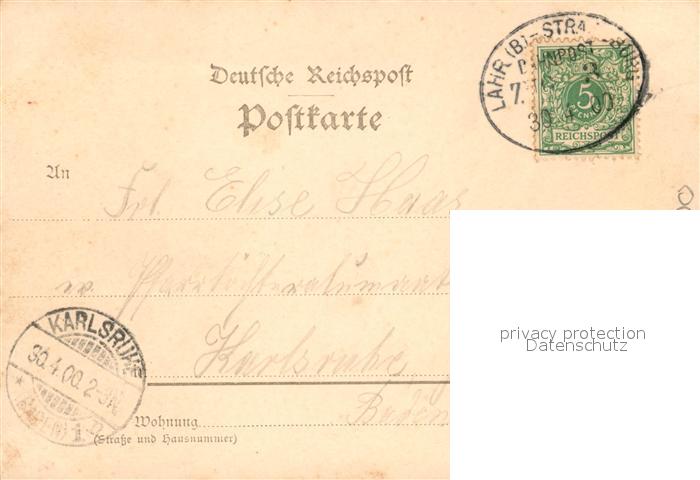 Deutsche Reichspost
Postkarte
LAHR (B)-STRA BURG
BAHNPOST
7. 3
30 4 00
5
PFENNIG
REICHSPOST
An
Frl. Elise Haas
Karlsruhe
Baden
KARLSRUHE
30.4.00.2-3N.
* (BADEN) 1.
Wohnung
(Straße und Hausnummer)
privacy protection
Datenschutz